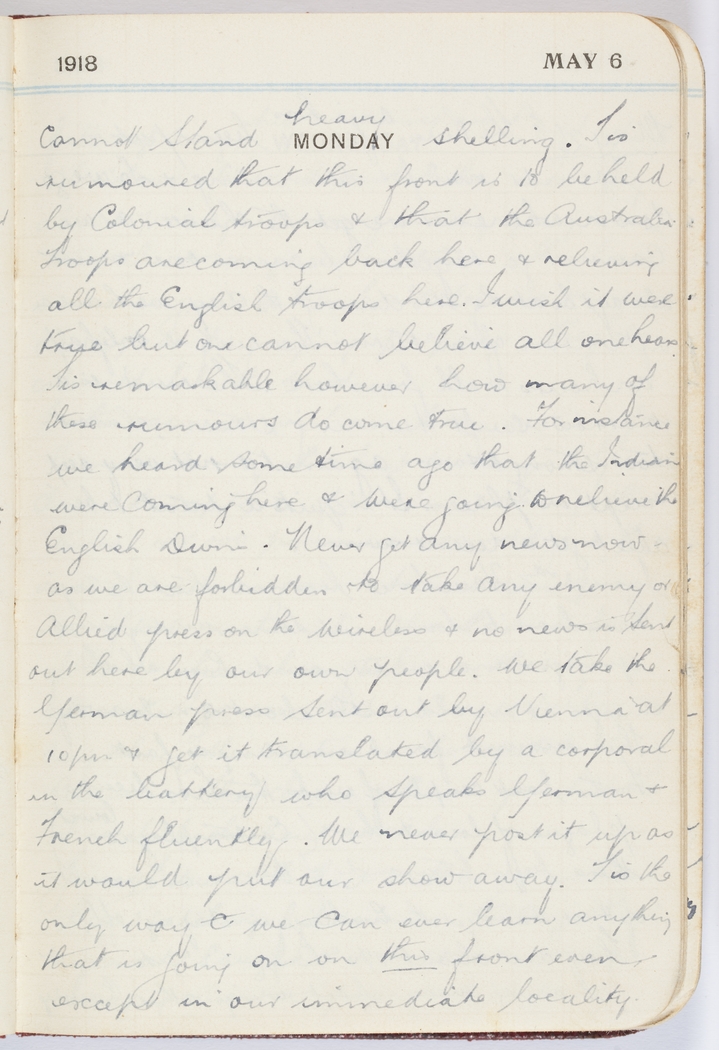 1918 MAY 6
Cannot stand heavy shelling. Tis
MONDAY
rumoured that this front is to be held
by Colonial troops & that the Australian
troops are coming back here & relieving
all the English troops here. I wish it were
true but one cannot believe all one hears.
Tis remarkable however how many of
these rumours do come true. For instance
we heard some time ago that the Indians
were coming here & were going to relieve the
English Divn. Never get any news now
as we are forbidden to take any enemy or
Allied press on the wireless & no news is sent
out here by our own people. We take the
German press sent out by Vienna at
10 pm & get it translated by a corporal
in the battery who speaks German &
French fluently. We never post it up as
it would put our show away. Tis the
only way we can ever learn anything
that is going on on this front even
except in our immediate locality.